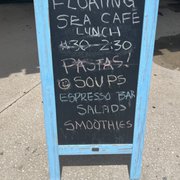 FLOATING
SEA CAFE
LUNCH
11:30-2:30
PASTAS!
SOUPS
ESPRESSO BAR
SALADS!
SMOOTHIES